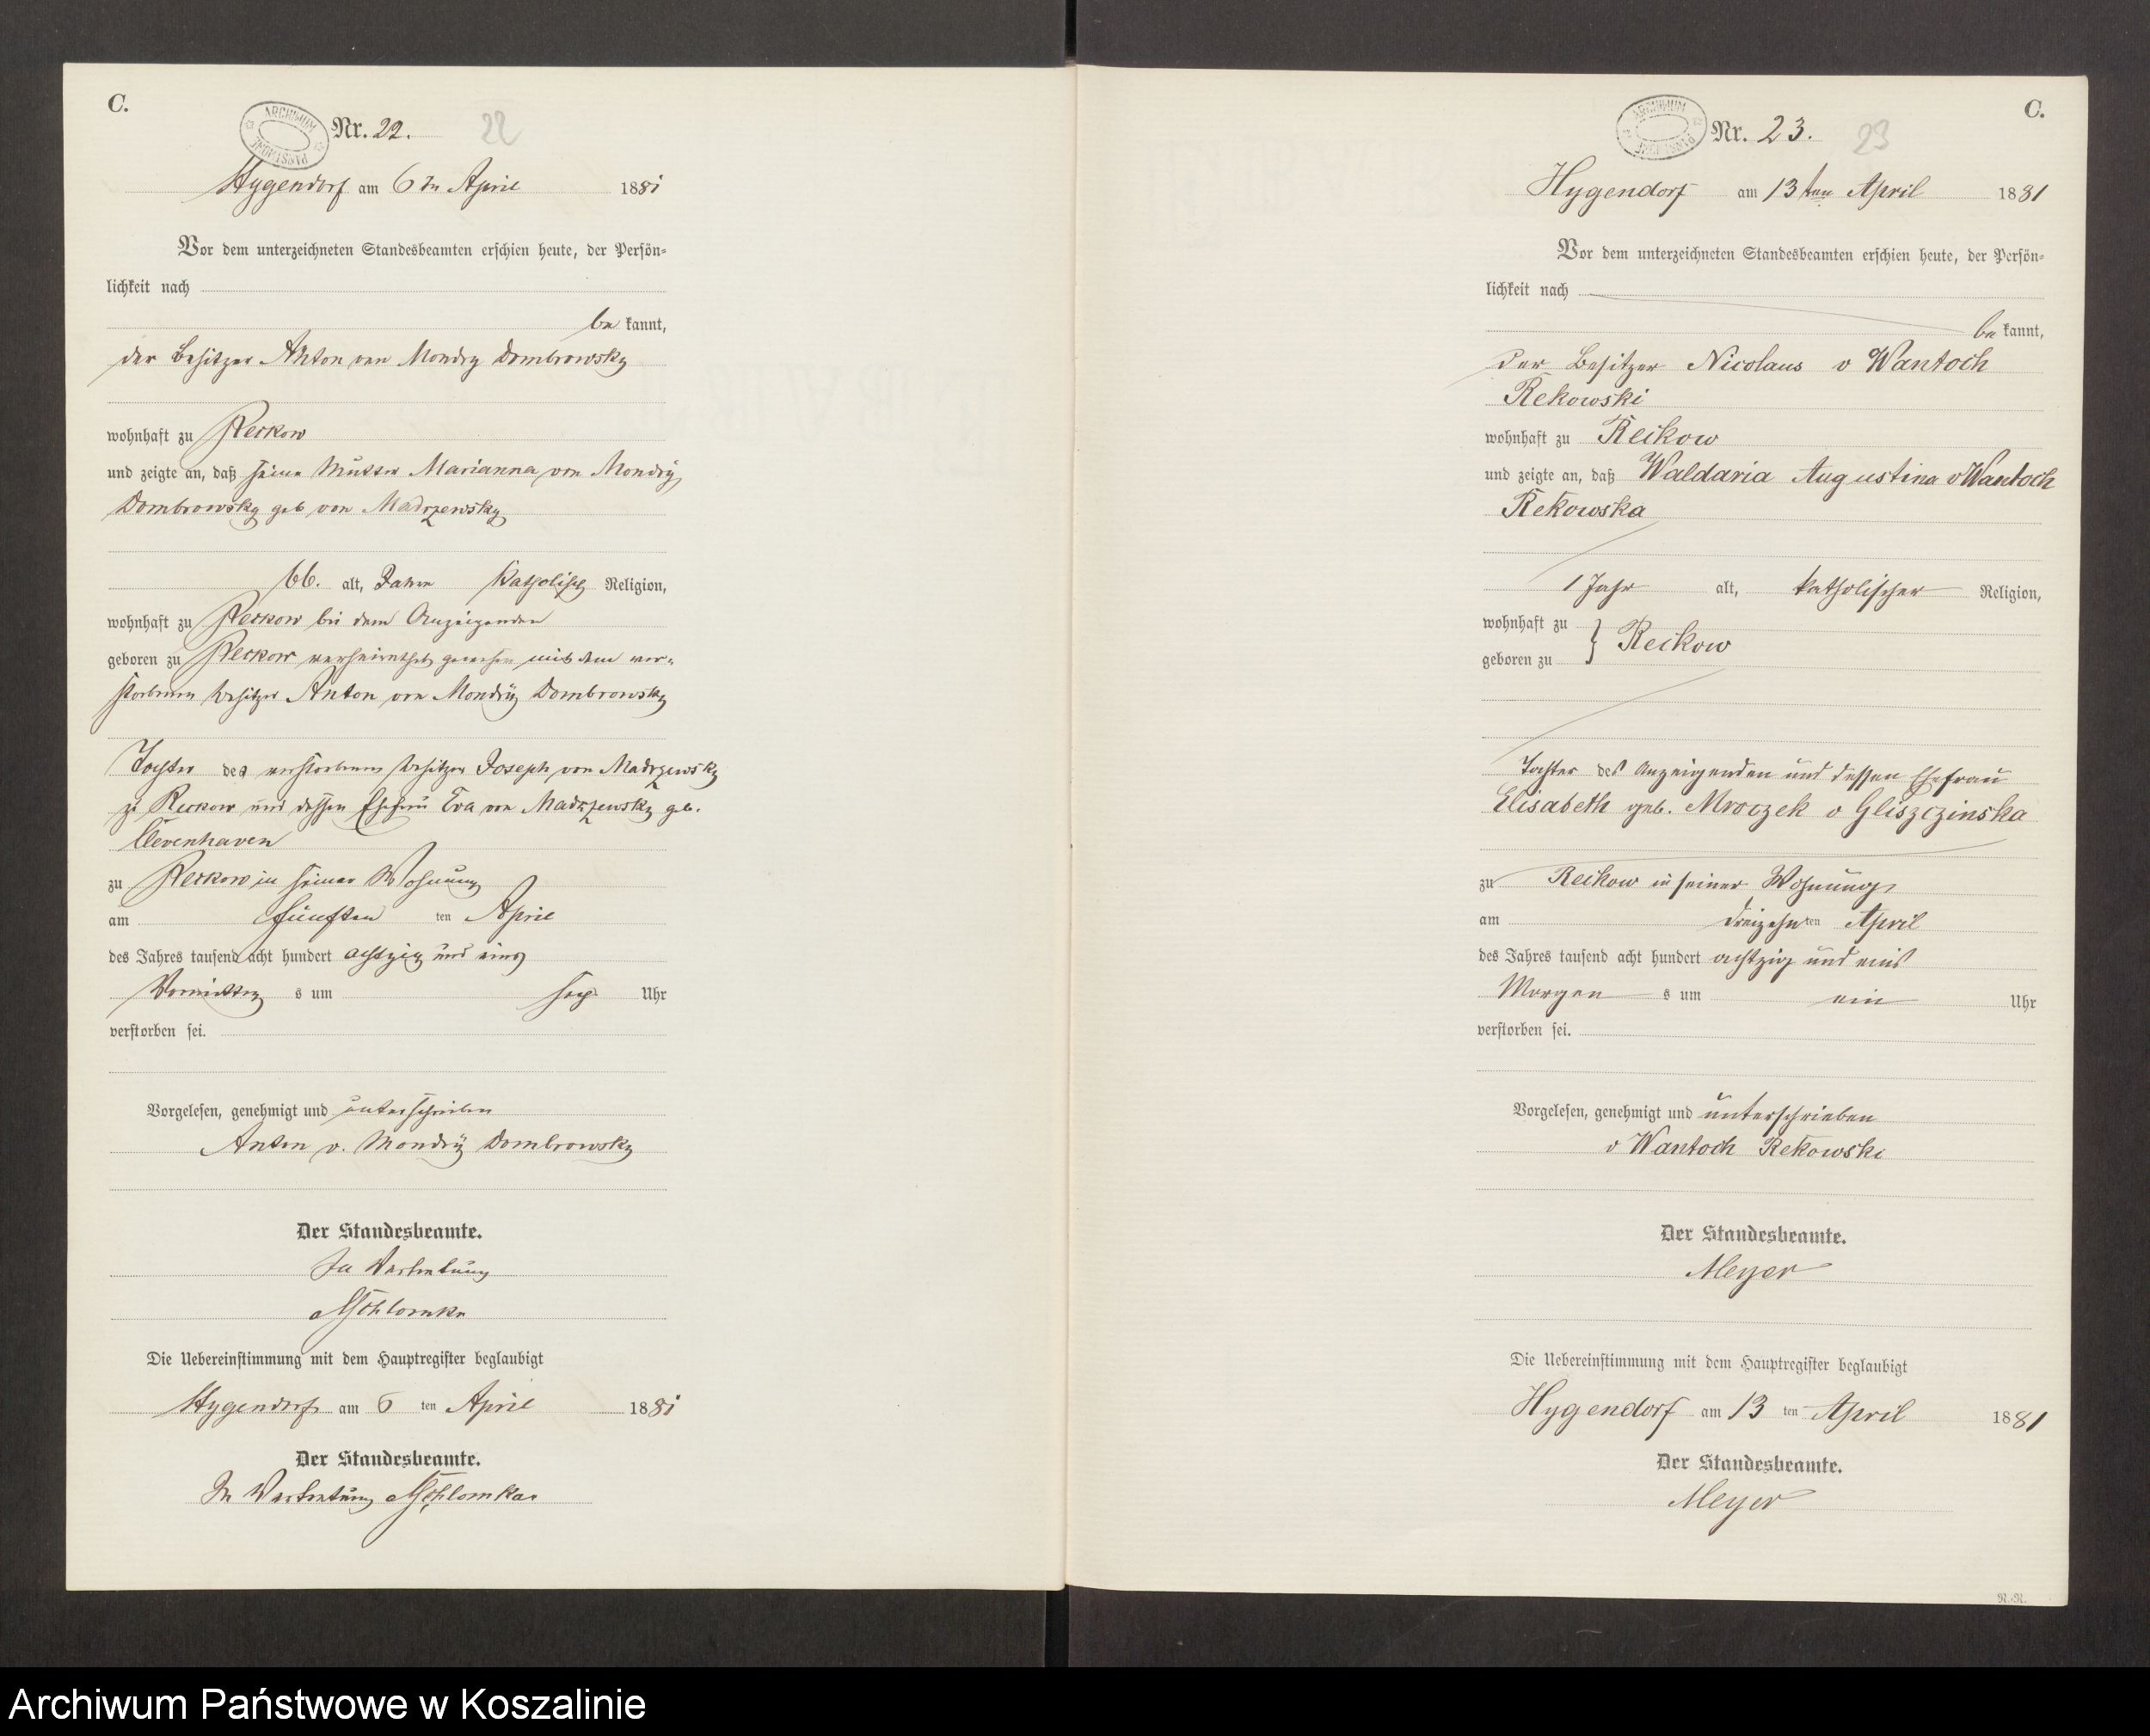 C.
ARCHIWUM PAŃSTWOWE
Nr. 22. 22
Hygendorf am 6 tn April 1881
Vor dem unterzeichneten Standesbeamten erschien heute, der Persön-
lichkeit nach
be kannt,
der Besitzer Anton von Mondry Dombrowsky
wohnhaft zu Reckow
und zeigte an, daß seine Mutter Marianna von Mondrÿ
Dombrowsky geb von Madrzewsky
66. alt, Jahre Katholisch Religion,
wohnhaft zu Reckow bei dem Anzeigenden
geboren zu Reckow verheirathet gewesen mit dem ver-
storbenen Besitzer Anton von Mondrÿ Dombrowsky
Tochter des verstorbenen Besitzer Joseph von Madrzewsky
zu Reckow und dessen Ehefrau Eva von Madrzewsky geb.
Clevenhaven
zu Reckow in seiner Wohnung
am fünften ten April
des Jahres tausend acht hundert achtzig und eins
Vormittag s um Uhr
verstorben sei.
Vorgelesen, genehmigt und unterschrieben
Anton v. Mondrÿ Dombrowsky
Der Standesbeamte.
In Vertretung
Die Uebereinstimmung mit dem Hauptregister beglaubigt
Hygendorf am 6 ten April 1881
Der Standesbeamte.
In Vertretung
C.
ARCHIWUM PAŃSTWOWE
Nr. 23. 23
Hygendorf am 13 ten April 1881
Vor dem unterzeichneten Standesbeamten erschien heute, der Persön-
lichkeit nach
be kannt,
der Besitzer Nicolaus v Wantoch
Rekowski
wohnhaft zu Reckow
und zeigte an, daß Waldaria Augustina v Wantoch
Rekowska
1 Jahr alt, katholischer Religion,
wohnhaft zu
geboren zu } Reckow
Tochter des Anzeigenden und dessen Ehefrau
Elisabeth geb. Mroczek v Gliszczinska
zu Reckow in seiner Wohnung
am dreizehn ten April
des Jahres tausend acht hundert achtzig und eins
Morgen s um ein Uhr
verstorben sei.
Vorgelesen, genehmigt und unterschrieben
v Wantoch Rekowski
Der Standesbeamte.
Meyer
Die Uebereinstimmung mit dem Hauptregister beglaubigt
Hygendorf am 13 ten April 1881
Der Standesbeamte.
Meyer
R.-R.
Archiwum Państwowe w Koszalinie